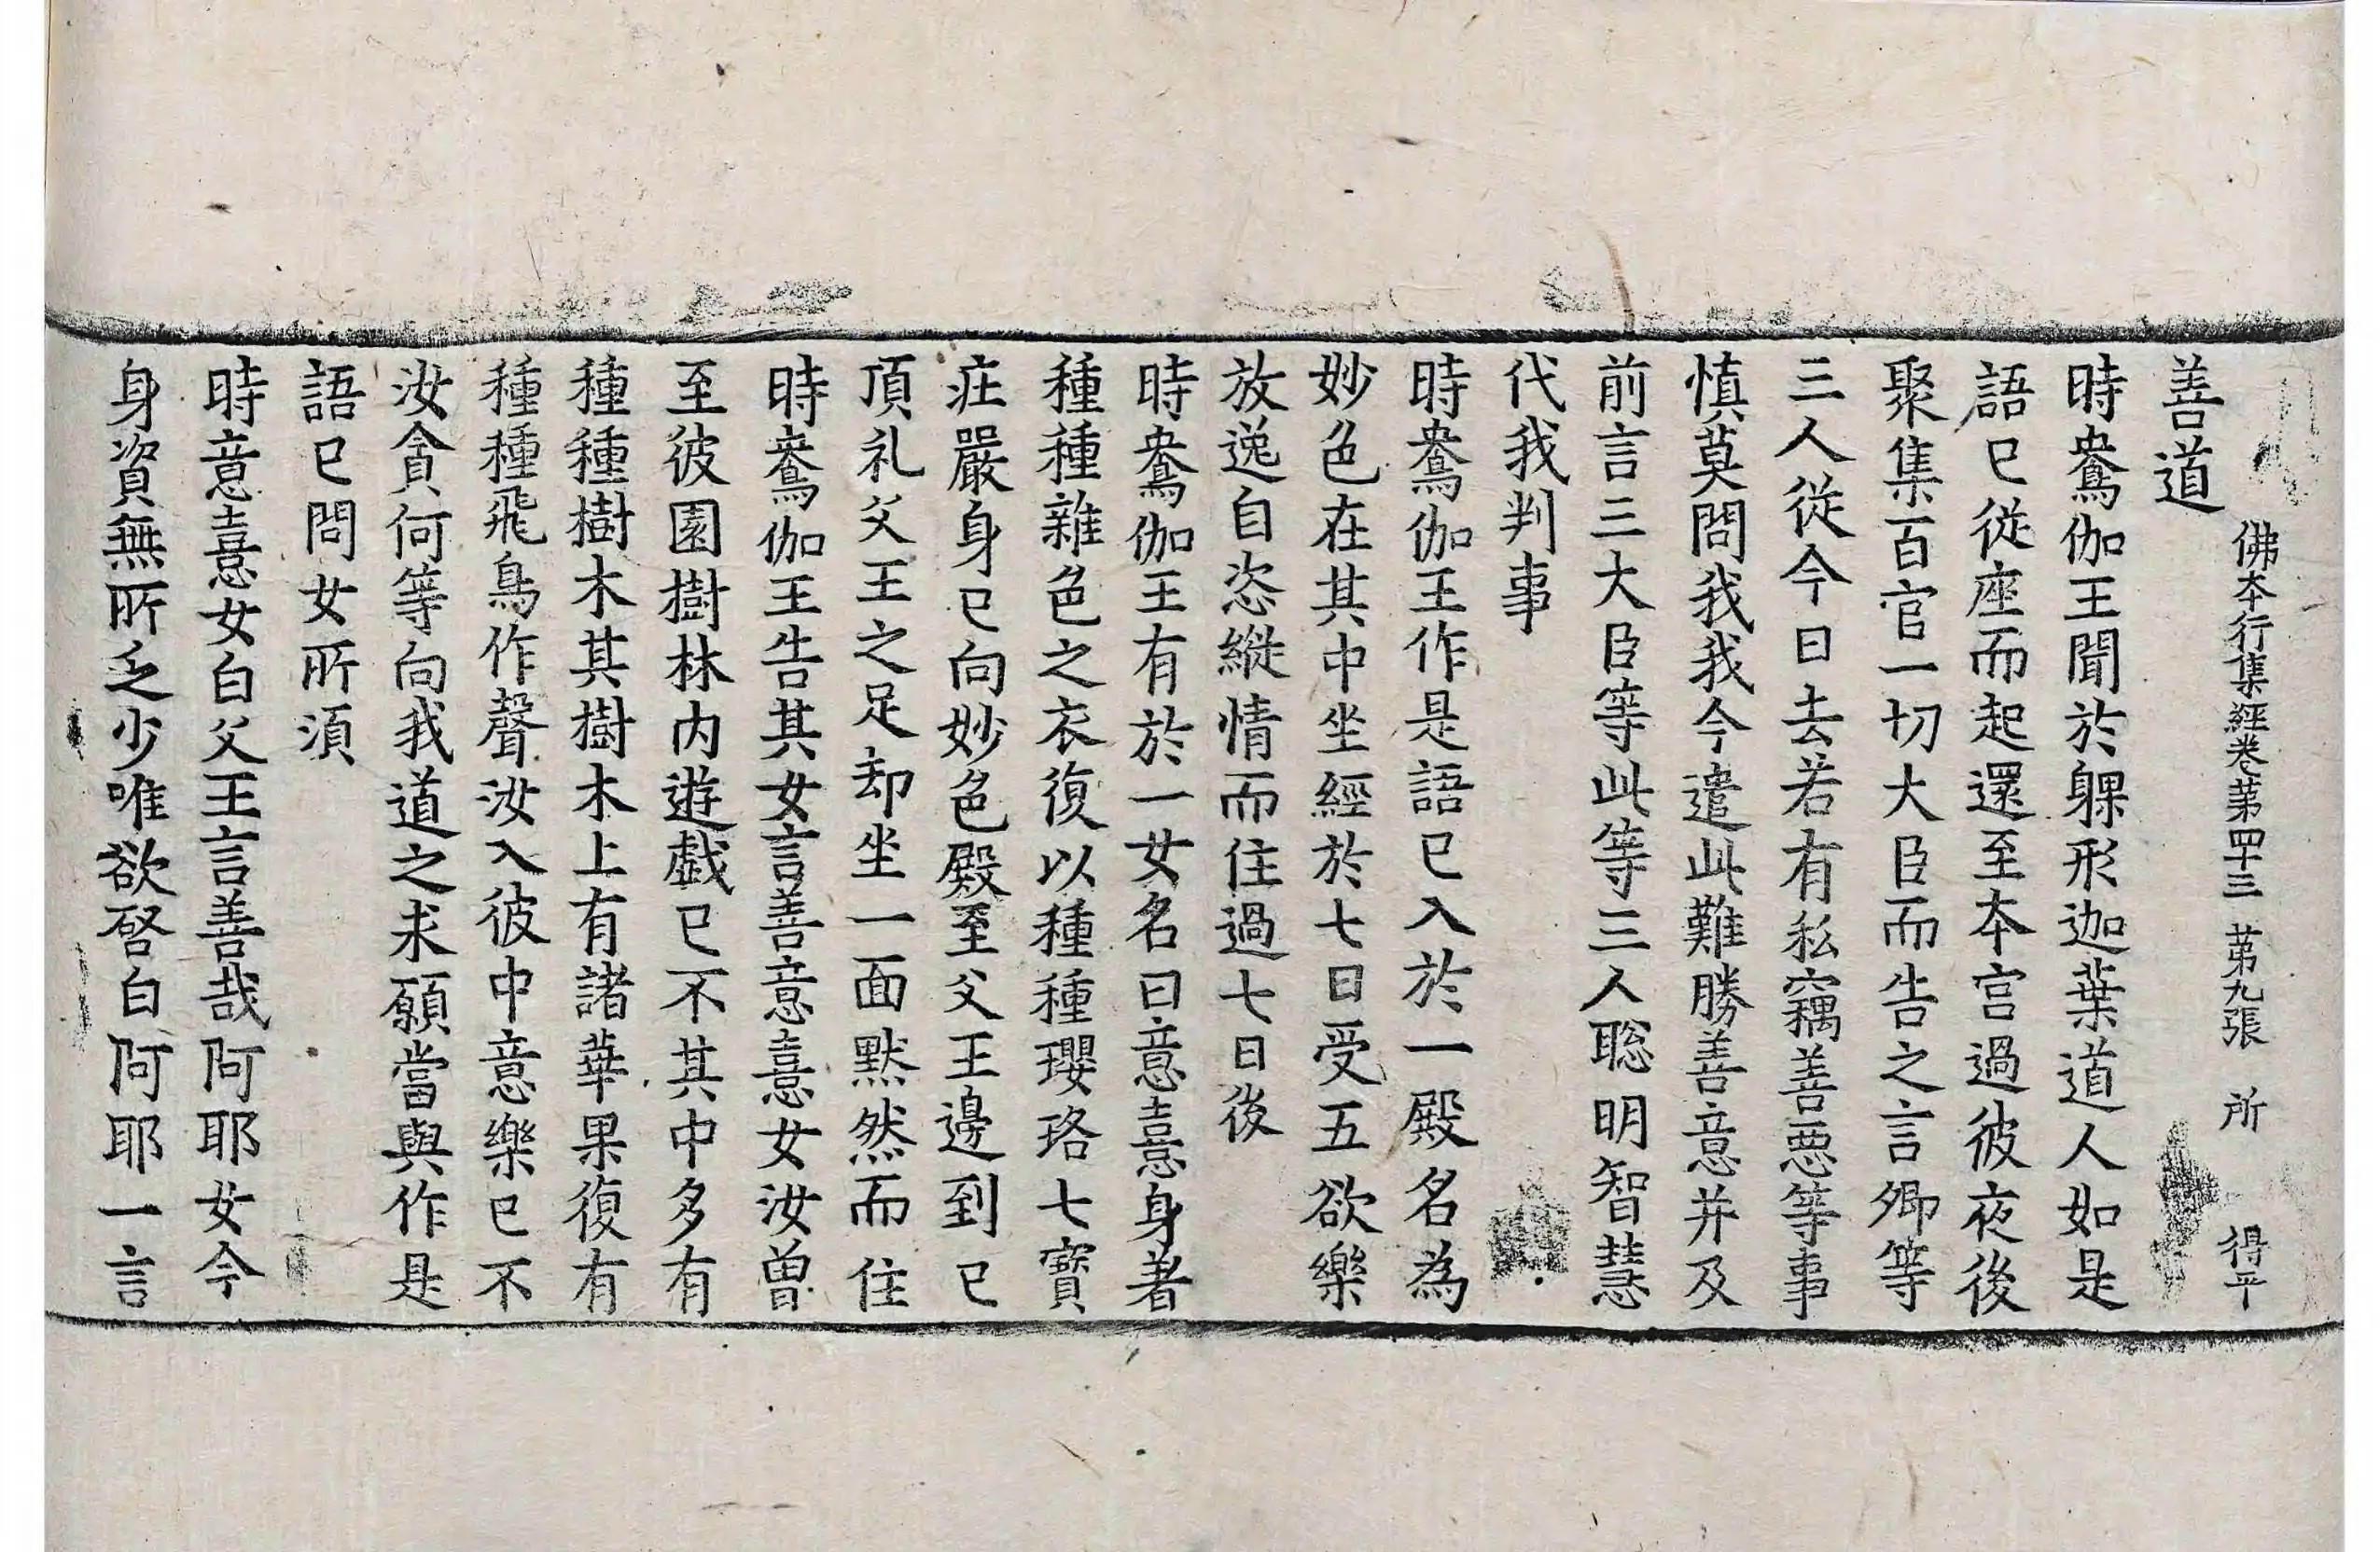 佛本行集經卷苐四十三 苐九張 所 得平
善道
時鴦伽王聞於躶形迦葉道人如是
語已從座而起還至本宫過彼夜後
聚集百官一切大臣而告之言卿等
三人從今日去若有私竊善惡等事
慎莫問我我今遣此難勝善意并及
前言三大臣等此等三人聡明智慧
代我判事
時鴦伽王作是語已入於一殿名為
妙色在其中坐經於七日受五欲樂
放逸自恣縱情而住過七日後
時鴦伽王有於一女名曰意憙身著
種種雜色之衣復以種種瓔珞七寶
莊嚴身已向妙色殿至父王邊到已
頂礼父王之足却坐一面默然而住
時鴦伽王告其女言善意憙女汝曾
至彼園樹林内遊戯已不其中多有
種種樹木其樹木上有諸華果復有
種種飛鳥作聲汝入彼中意樂已不
汝貪何等向我道之求願當與作是
語已問女所須
時意憙女白父王言善哉阿耶女今
身資無所乏少唯欲啓白阿耶一言